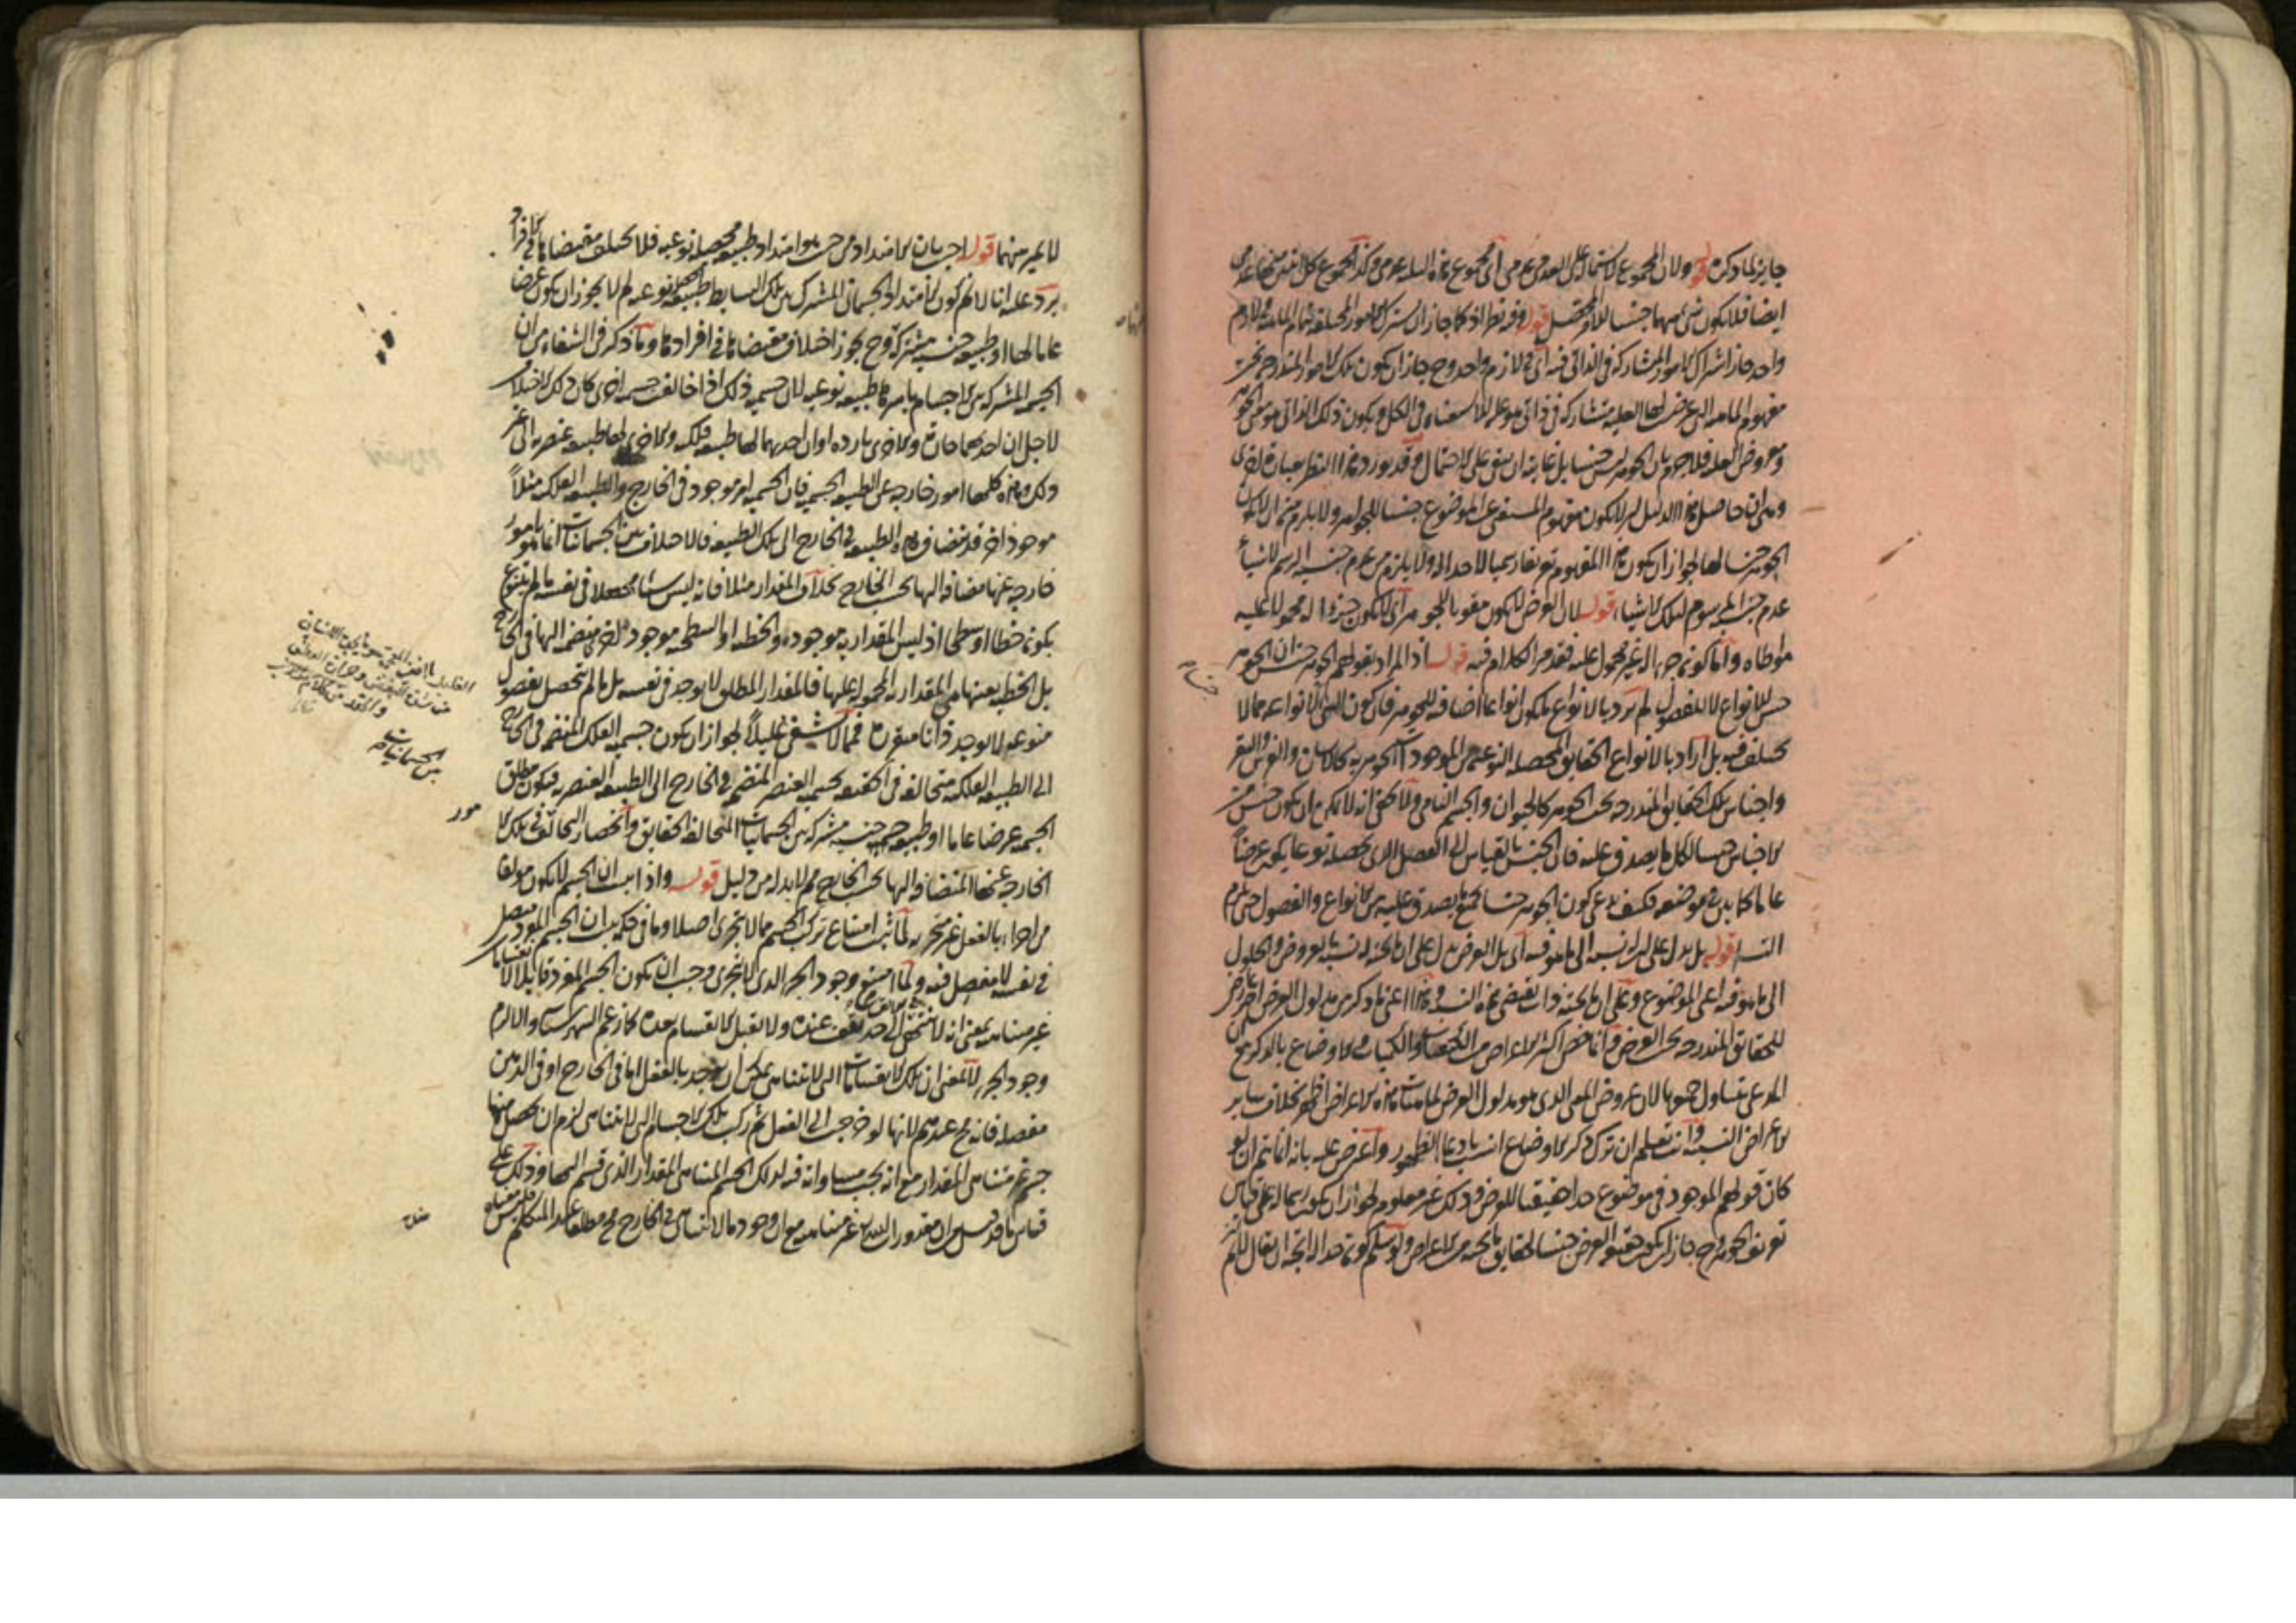 جايز لما ذكره قوله ولان المجموع لاشتماله على العدمى عدمى اى مجموع هذه الثلثة عدمى وكذا المجموع كل اثنين منها عدمى
ايضا فلا يكون شى منهما جنسا للامر المحصل قوله وفيه نظر اذ كما جاز ان يشترك الامور المختلفة بتمام الماهية فى لازم
واحد جاز اشتراك الامور المشاركة فى الذاتى فيه اى فى لازم واحد وح جاز ان يكون تلك الامور المندرجة تحت
مفهوم الماهية التى عرضت لها العلية متشاركة فى ذاتى هو علة للاستغناء فى الكل ويكون ذلك الذاتى هو معنى الجوهر
ومعروض العلة فلا جزم بان الجوهر ليس جنسا بل غايته ان يبقى على الاحتمال وقد يورد هذا النظر بعبارة اخرى
وهى ان حاصل هذا الدليل ان لا يكون مفهوم المستغنى عن الموضوع جنسا للجواهر ولا يلزم منه ان لا يكون
الجوهر جنسا لها لجواز ان يكون هذا المفهوم تعريفا رسميا لا حدا له ولا يلزم من عدم جنسية الرسم لاشياء
عدم جنسية المرسوم لتلك الاشياء قوله لان العرض لا يكون مقوما للجوهر اى لا يكون جزءا له محمولا عليه
مواطاة واما كونه جزءا له غير محمول عليه فقد مر الكلام فيه قوله اذ المراد بقولهم الجوهر جنس ان الجوهر
جنس للانواع لا للفصول لم يرد بالانواع ما يكون انواعا اضافية للجوهر فان كون الجنس لانواعه مما لا
يختلف فيه بل اراد بالانواع الحقايق المحصلة النوعية من الموجودات الجوهرية كالانسان والفرس والبقر
واجناس تلك الحقايق المندرجة تحت الجوهر كالحيوان والجسم النامى ولا يخفى انه لا يمكن ان يكون جنس من
الاجناس جنسا لكل ما يصدق عليه فان الجنس بالقياس الى الفصل الذى يحصله نوعا يكون عرضا
عاما كما بين فى موضعه فكيف يدعى كون الجوهر جنسا لجميع ما يصدق عليه من الانواع والفصول حتى يلزم
التسلسل قوله بل يدل على ان له نسبة الى ما هو فيه اى بل العرض يدل على ان ما تحته له نسبة بالعروض والحلول
الى ما هو فيه اعنى الموضوع وعلى ان ما تحته ذات تقتضى هذه النسبة وهذا اعنى ما ذكر من مدلول العرض امر عارض
للحقايق المندرجة تحت العرض وانما خص اكثر الاعراض من الكيفيات والكميات والاوضاع بالذكر مع ان
المدعى يتناول جميعها لان عروض المعنى الذى هو مدلول العرض لماهيات هذه الاعراض اظهر بخلاف ساير
الاعراض النسبية وانت تعلم ان ترك ذكر الاوضاع انسب بادعاء الظهور واعترض عليه بانه انما يتم ان لو
كان قولهم الموجود فى موضوع حدا حقيقيا للعرض وذلك غير معلوم لجواز ان يكون رسما له على قياس
تعريف الجوهر وح جاز ان يكون حقيقة العرض جنسا لحقايق ما تحته من الاعراض ولو سلم كونه حدا له اتجه ان يقال لم
لا يميز منهما قوله اجيب بان الامتداد من حيث هو امتداد طبيعة محصلة نوعية فلا يختلف مقتضياتها فى افرادها
يرد عليه انا لا نم كون الامتداد الجسمانى المشترك بين تلك البسايط طبيعة محصلة نوعية لم لا يجوز ان يكون عرضا
عاما لها او طبيعة جنسية مشتركة وح يجوز اختلاف مقتضياتها فى افرادها وما ذكر فى الشفاء من ان
الجسمية المشتركة بين الاجسام باسرها طبيعة نوعية لان جسمية ذلك اذا خالفت جسمية اخرى كان ذلك الاختلاف
لاجل ان احديهما حارة والاخرى باردة او ان احديهما لها طبيعة فلكية والاخرى لها طبيعة عنصرية الى غير
ذلك وهذه كلها امور خارجة عن الطبيعة الجسمية فان الجسمية امر موجود فى الخارج والطبيعة الفلكية مثلا
موجود اخر قد تنضاف هذه الطبيعة فى الخارج الى تلك الطبيعة فالاختلاف بين الجسمانيات انما هو بامور
خارجة عنها مضافة اليها بحسب الخارج بخلاف المقدار مثلا فانه ليس شيئا محصلا فى نفسه ما لم يتنوع
بكونه خطا او سطحا اذ ليس المقدارية موجودة والخطية او السطحية موجود اخر منضمة اليها فى الخارج
بل الخطية بعينها هى المقدارية المحمولة عليها فالمقدار المطلق لا يوجد فى نفسه بل ما لم يتحصل بفصول
منوعة لا يوجد ذاتا متقررة فمما لا يشفى عليلا لجواز ان يكون جسمية الفلك المنضمة فى الخارج
الى الطبيعة الفلكية متخالفة فى الحقيقة بجسمية العنصر المنضمة فى الخارج الى الطبيعة العنصرية فيكون مطلق
الجسمية عرضا عاما او طبيعة جنسية مشتركة بين الجسمانيات المتخالفة الحقايق وانحصار التخالف فى تلك الا
الخارجة عنها المنضافة اليها بحسب الخارج مم لا بد له من دليل قوله واذا ثبت ان الجسم لا يكون مولفا
من اجزاء بالفعل غير متجزية لما ثبت امتناع تركب الجسم مما لا يتجزى اصلا وما فى حكمه ثبت ان الجسم المفرد متصل
فى نفسه لا مفصل فيه ولما امتنع وجود الجزء الذى لا يتجزى وجب ان يكون الجسم المفرد قابلا لانقسامات
غير متناهية بمعنى انه لا تنتهى الى حد يقف عنده ولا يقبل الانقسام بعده كما زعم الشهرستانى والا لزم
وجود الجزء لا بمعنى ان تلك الانقسامات التى لا تتناهى يمكن ان توجد بالفعل اما فى الخارج او فى الذهن
مفصلة فانه مح عندهم لانها لو خرجت الى الفعل ثم ركب تلك الاجسام التى لا تتناهى لزم ان يحصل منها
جسم غير متناهى المقدار مع انه يجب مساواته فيه لذلك الجسم المتناهى المقدار الذى قسم اليها وذلك على
قياس ما قد قيل من ان مقدورات الله تع غير متناهية مع ان وجود ما لا يتناهى فى الخارج مح مطلقا عند المتكلمين